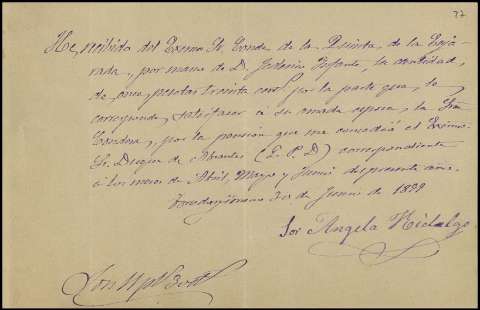 77
He recibido del Exmo Sr Conde de la Quinta de la Enja-
rada, por mano de D. Federico Infante, la cantidad,
de once pesetas treinta cent por la parte que, le
corresponde, satisfacer á su amada esposa, la Sra
Condesa, por la pension que me concedió el Exsmo.
Sr. Duque de Abrantes (E. P. D) correspondiente
á los meses de Abril, Mayo y Junio del presente año.
30 de Junio de 1899
Sor Angela Hidalgo